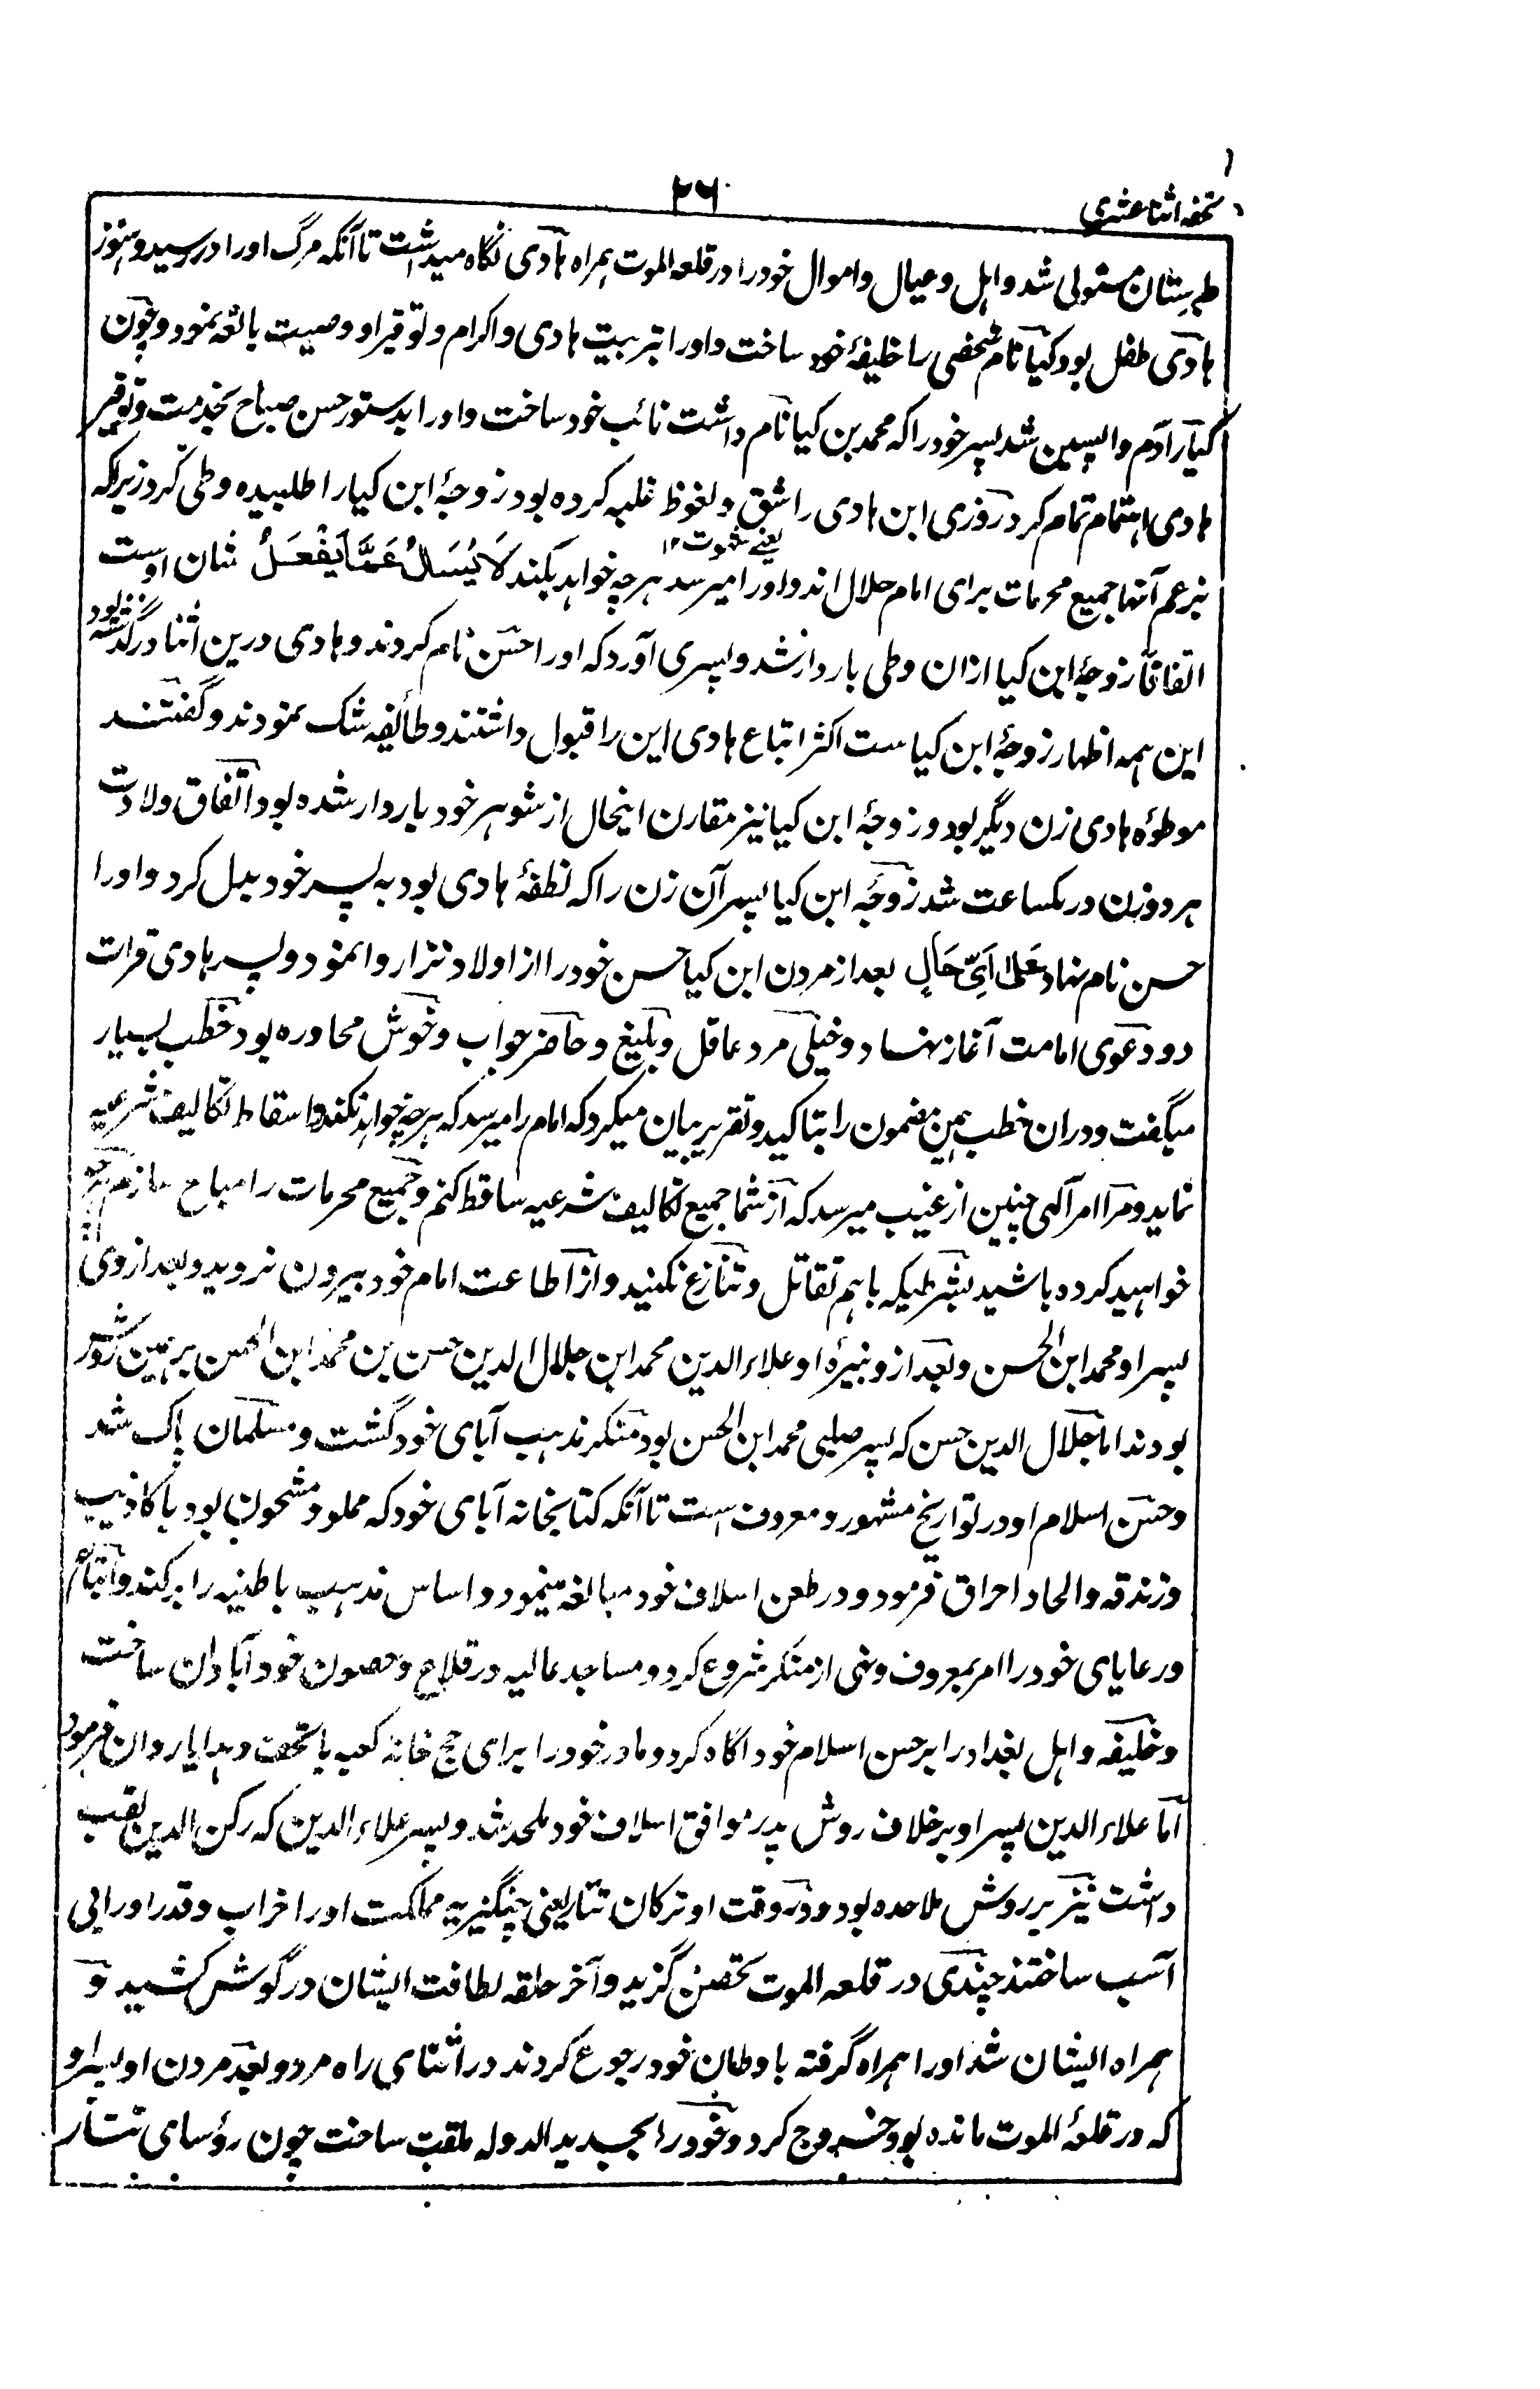 تحفہ اثنا عشری
۲۶
طبرستان مستولی شد و اہل و عیال و اموال خود را در قلعہ الموت ہمراہ ہادی نگاہ میداشت تا آنکہ مرگ او را در رسید و ہنوز
ہادی طفل بود کیا نام شخصی را خلیفۂ خود ساخت و او را بتربیت ہادی و اکرام و توقیر او وصیت بالغہ نمود و چون
کیا را دم واپسین شد پسر خود را کہ محمد بن کیا نام داشت نائب خود ساخت و او را بدستور حسن صباح بخدمت و توقیر
ہادی اہتمام تمام کرد روزی ابن ہادی را شبق و لغوظ غلبہ کردہ بود زوجۂ ابن کیا را طلبیدہ وطی کرد زیراکہ
یعنے شہوت ۱۲
بزعم آنہا جمیع محرمات برای امام حلال اند و او را میرسد ہرچہ خواہد بکند لَا یُسْئَلُ عَمَّا یَفْعَلُ شان اوست
اتفاقاً زوجۂ ابن کیا ازان وطی باردار شد و پسری آورد کہ او را حسن نام کردند و ہادی درین اثنا در گذشتہ بود
این ہمہ اظہار زوجۂ ابن کیا ست اکثر اتباع ہادی این را قبول داشتند و طائفہ شک نمودند و گفتند
موطوۂ ہادی زن دیگر بود و زوجۂ ابن کیا نیز مقارن اینحال از شوہر خود باردار شدہ بود اتفاق ولادت
ہر دو زن در یکساعت شد زوجۂ ابن کیا پسر آن زن را کہ نطفۂ ہادی بود بہ پسر خود بدل کرد و او را
حسن نام نہاد عَلٰی اَیِّ حَالٍ بعد از مردن ابن کیا حسن خود را از اولاد نزار وا نمود و پسر ہادی قرار
دادو دعوی امامت آغاز نہاد و خیلی مرد عاقل و بلیغ و حاضر جواب و خوش محاورہ بود خطب بسیار
میگفت و دران خطب ہمین مضمون را بتاکید و تقریر بیان میکرد کہ امام را میرسد کہ ہرچہ خواہد بکند و اسقاط تکالیف شرعیہ
نماید و مرا امر الٰہی چنین از غیب میرسد کہ از شما جمیع تکالیف شرعیہ ساقط کنم و جمیع محرمات را مباح سازم ہرچہ
خواہید کردہ باشید بشرطیکہ باہم تقاتل و تنازع نکنید و از اطاعت امام خود بیرون نروید و بعد از وی
پسر او محمد ابن الحسن و بعد ازو نبیرہ او علاء الدین محمد ابن جلال الدین حسن بن محمد ابن الحسن بر ہمین روش
بودند اما جلال الدین حسن کہ پسر صلبی محمد ابن الحسن بود منکر مذہب آبای خود گشت و مسلمان پاک شد
و حسن اسلام او در تواریخ مشہور و معروف است تا آنکہ کتابخانہ آبای خود کہ مملو و مشحون بود باکاذیب
و زندقہ و الحاد احراق فرمود و در طعن اسلاف خود مبالغہ مینمود و اساس مذہب باطنیہ را برکند و اتباع
و رعایای خود را امر بمعروف و نہی از منکر شروع کرد و مساجد عالیہ در قلاع و حصون خود آبادان ساخت
و خلیفہ و اہل بغداد را بر حسن اسلام خود آگاہ کرد و مادر خود را برای حج خانہ کعبہ با تحف و ہدایا روان فرمود
اما علاء الدین پسر او برخلاف روش پدر موافق اسلاف خود ملحد شد و پسر علاء الدین کہ رکن الدین لقب
داشت نیز بر روش ملاحدہ بود و در وقت او ترکان تتار یعنی چنگیزیہ مملکت او را خراب و قدر او را بی
آسب ساختند چندی در قلعہ الموت تحصن گزید و آخر حلقہ اطاعت ایشان در گوش کشید و
ہمراہ ایشان شد او را ہمراہ گرفتہ باوطان خود رجوع کردند در اثنای راہ مرد و بعد مردن او پسر او
کہ در قلعۂ الموت ماندہ بود خروج کرد و خود را بجدید الدولہ ملقب ساخت چون رؤسای تتار